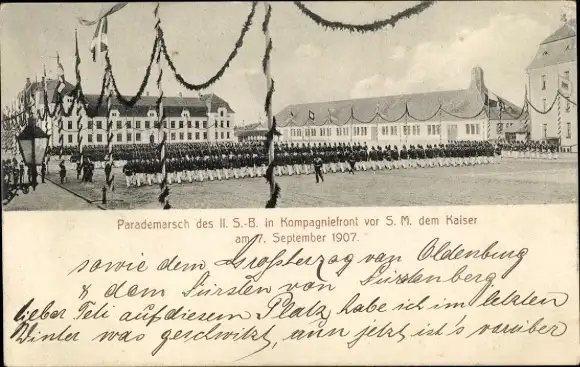 Parademarsch des II. S.-B. in Kompagniefront vor S. M. dem Kaiser
am 7. September 1907.
sowie dem Großherzog von Oldenburg
& dem Fürsten von Fürstenberg
lieber Teli auf diesem Platz habe ich im letzten
Winter was geschwitzt, aun jetzt ist's vorüber